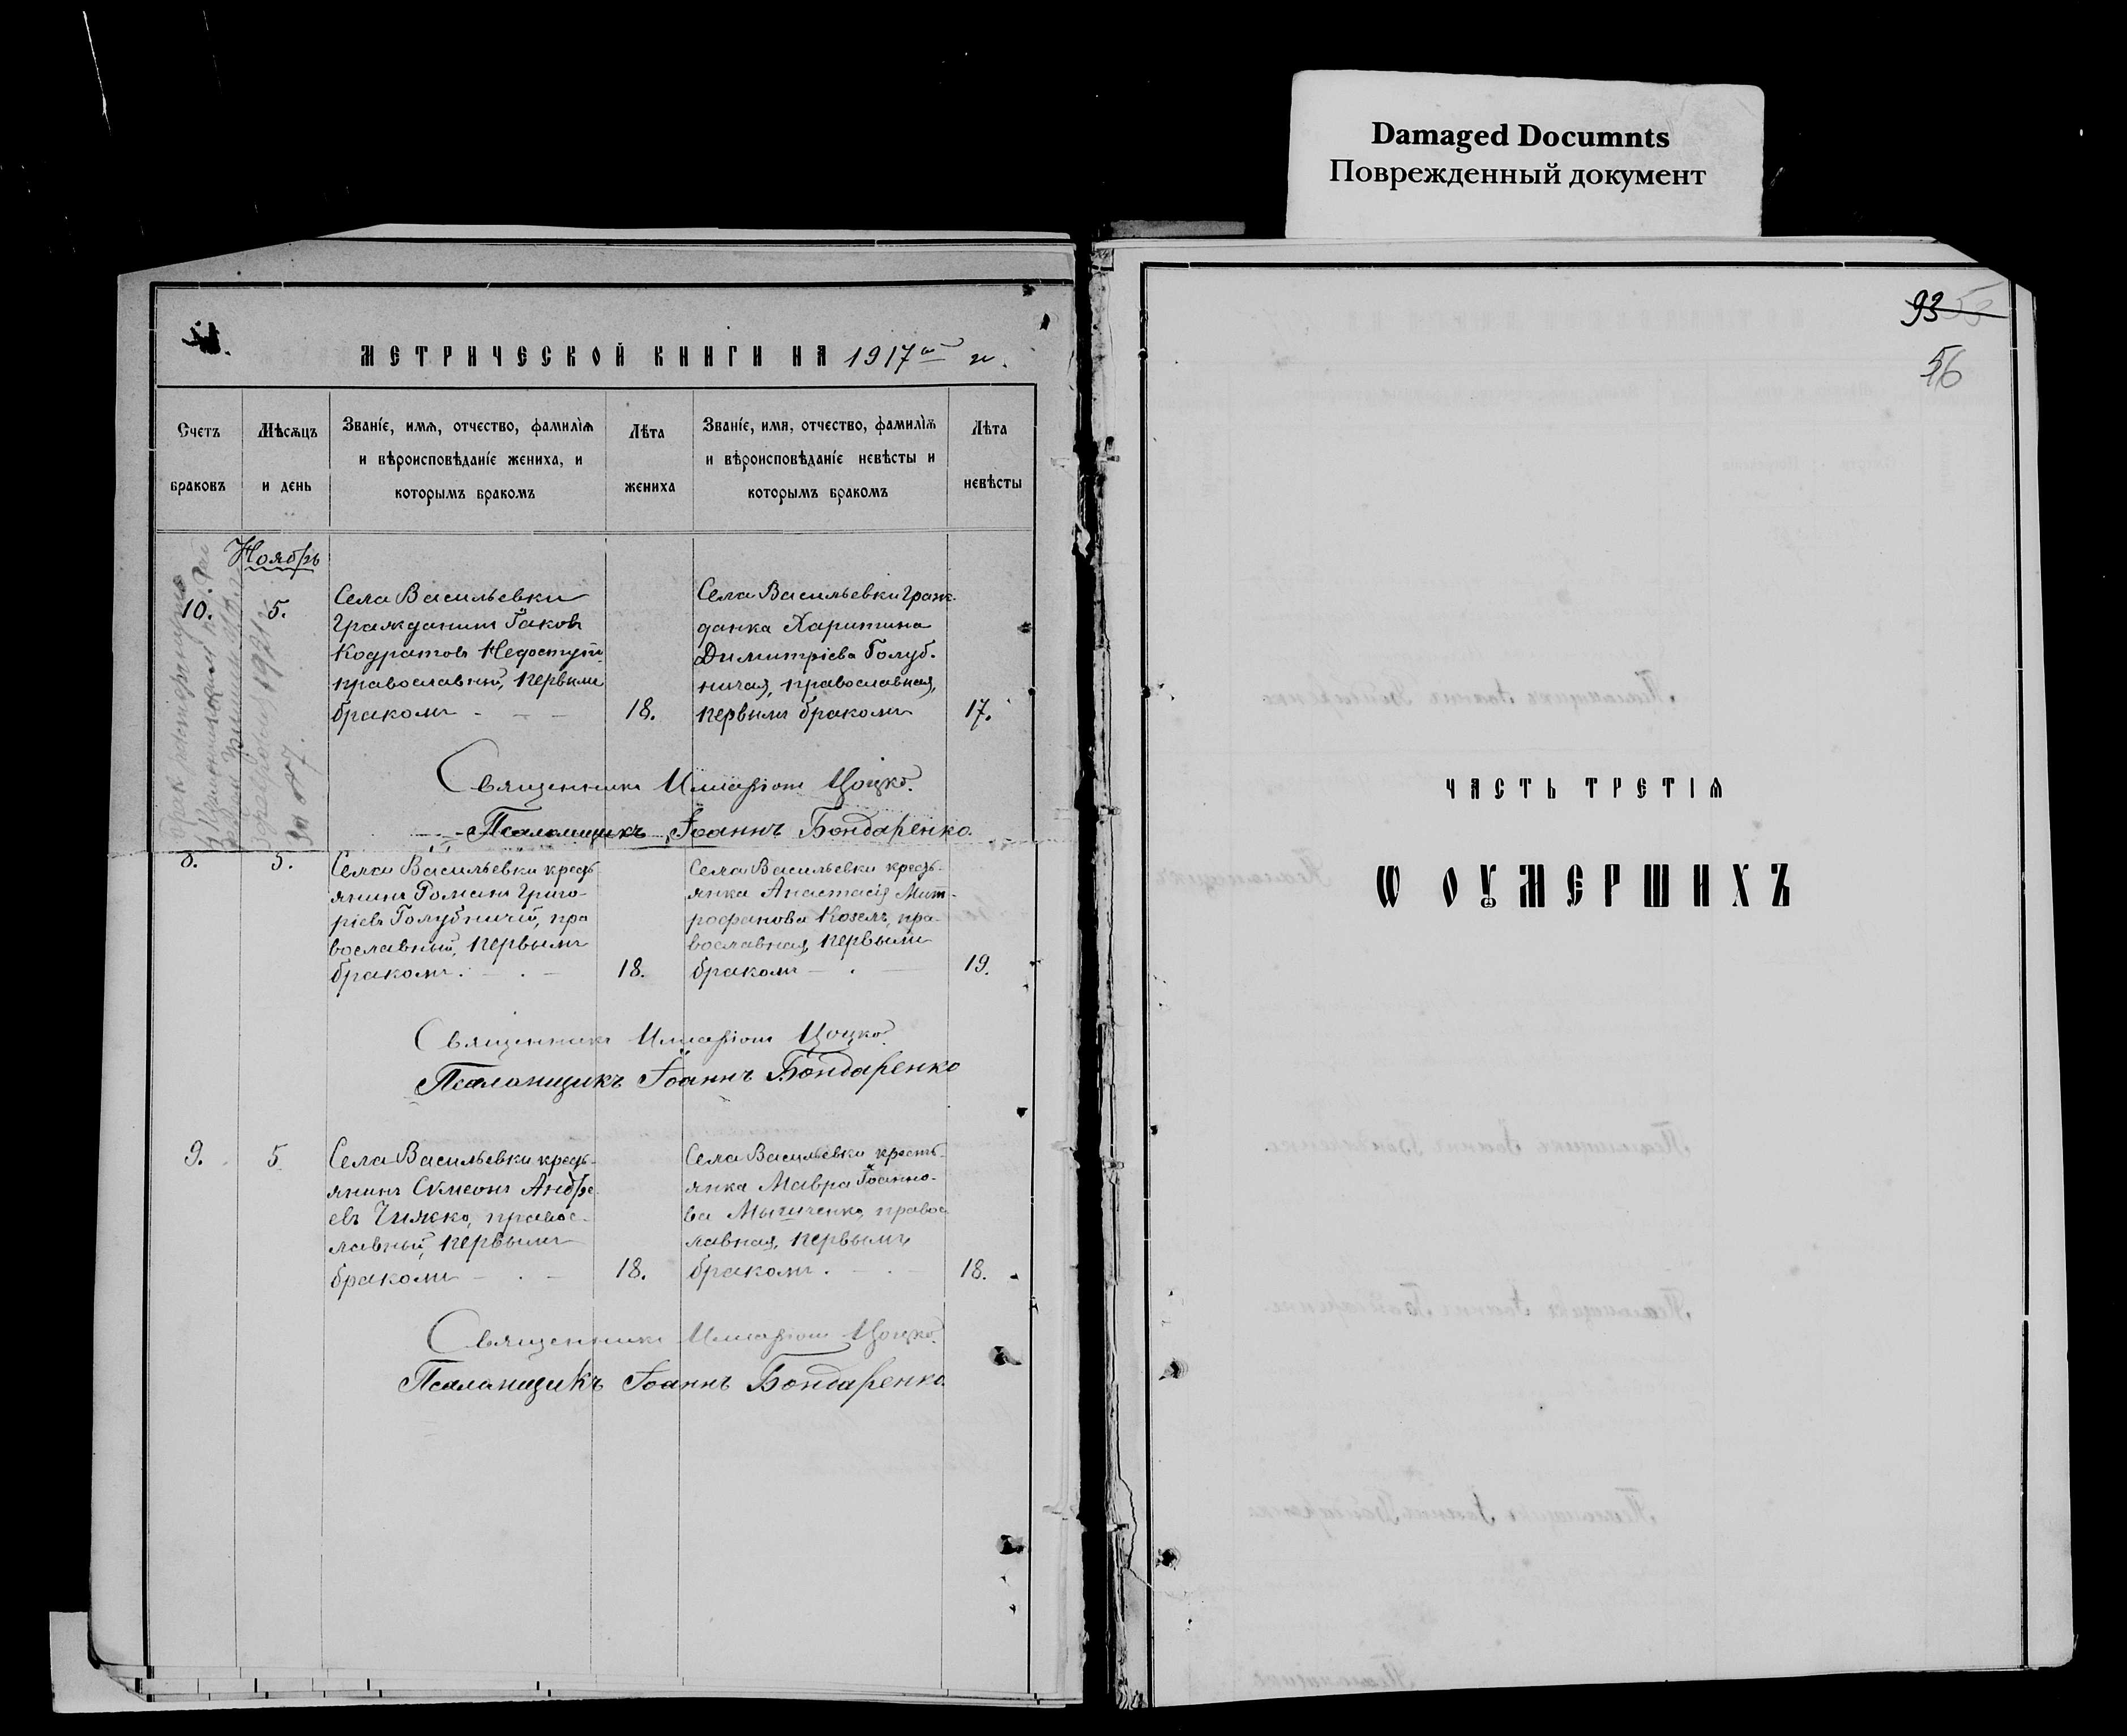 Damaged Documnts
Поврежденный документ
МЕТРИЧЕСКОЙ КНИГИ НА 1917 г.
Счетъ браковъ
Мѣсѧцъ и день
Званіе, имѧ, отчество, фамиліѧ
и вѣроисповѣданіе жениха, и
которымъ бракомъ
Лѣта жениха
Званіе, имя, отчество, фамиліѧ
и вѣроисповѣданіе невѣсты и
которымъ бракомъ
Лѣта невѣсты
Ноябрь
10.
5.
Села Васильевки
Гражданинъ Іаковъ
Кодратовъ Недоступ
православный, первымъ
бракомъ
18.
Села Васильевки Граж-
данка Харитина
Димитріева Голуб-
ничая, православная,
первымъ бракомъ
17.
Священникъ Илларіонъ Цоцко.
Псаломщикъ Іоаннъ Бондаренко.
8.
5.
Села Васильевки кресть-
янинъ Романъ Григо-
ріевъ Голубничій, пра
вославный, первымъ
бракомъ.
18.
Села Васильевки кресть-
янка Анастасія Мит-
рофанова Козелъ, пра-
вославная, первымъ
бракомъ
19.
Священникъ Илларіонъ Цоцко.
Псаломщикъ Іоаннъ Бондаренко
9.
5
Села Васильевки кресть-
янинъ Сѵмеонъ Андре
евъ Чижко, правос-
лавный, первымъ
бракомъ
18.
Села Васильевки кресть-
янка Мавра Іоанно-
ва православная, первымъ
бракомъ.
18.
Священникъ Илларіонъ Цоцко.
Псаломщикъ Іоаннъ Бондаренко.
93
56
ЧАСТЬ ТРЕТІѦ
Ѡ ОУМЕРШИХЪ